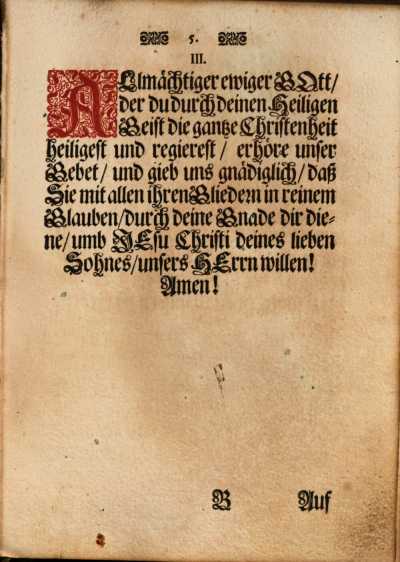 5.
III.
ALlmächtiger ewiger GOtt/
der du durch deinen Heiligen
Geist die gantze Christenheit
heiligest und regierest / erhöre unser
Gebet/ und gieb uns gnädiglich/ daß
Sie mit allen ihren Gliedern in reinem
Glauben/durch deine Gnade dir die-
ne/umb JEsu Christi deines lieben
Sohnes/unsers HErrn willen!
Amen!
B Auf